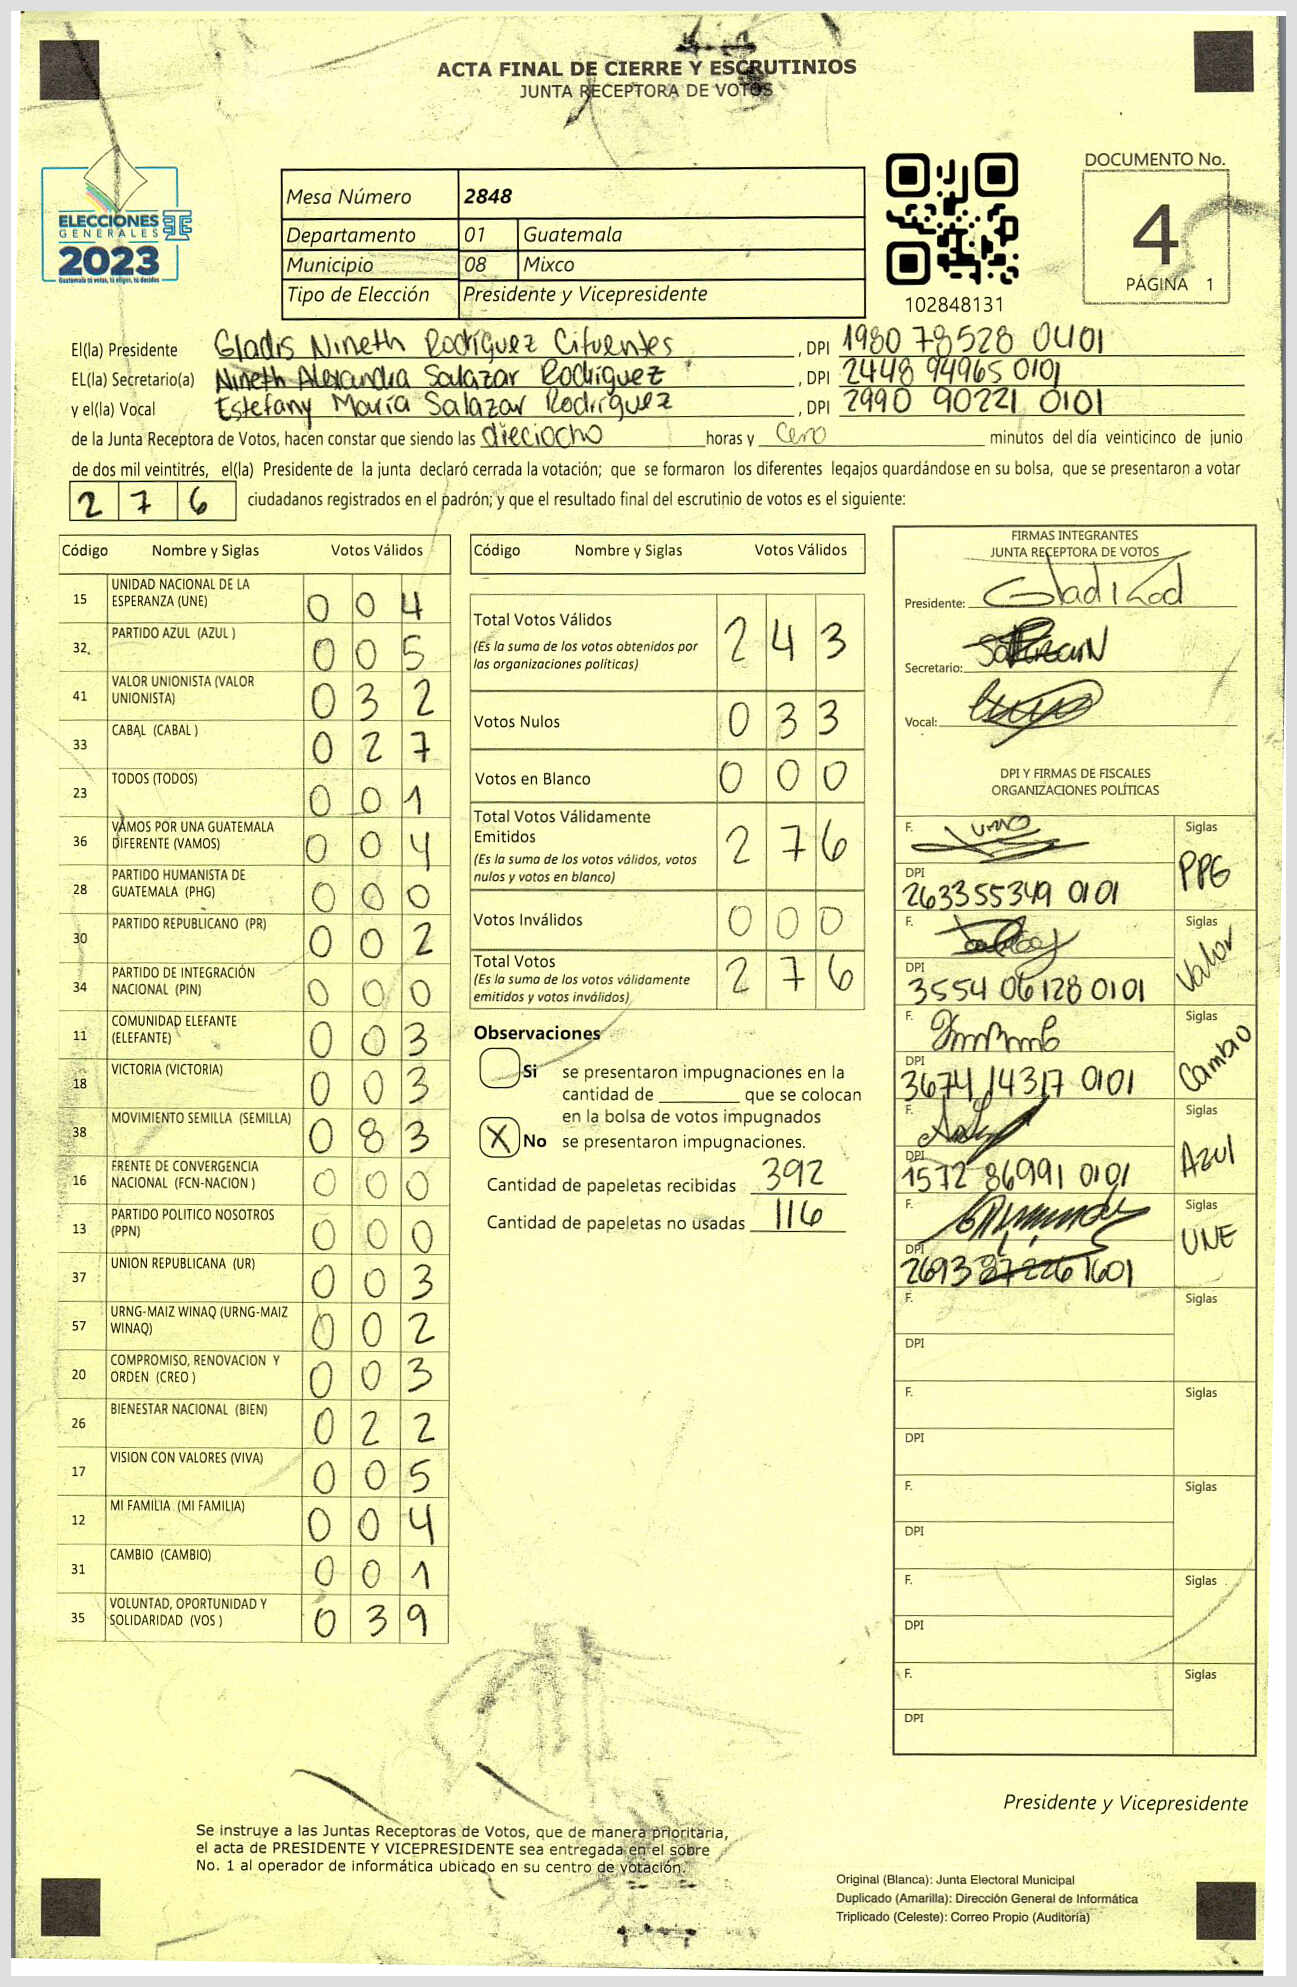 ACTA FINAL DE CIERRE Y ESCRUTINIOS
JUNTA RECEPTORA DE VOTOS
ELECCIONES
GENERALES
2023
Guatemala tú votas, tú eliges, tú decides
Mesa Número 2848
Departamento 01 Guatemala
Municipio 08 Mixco
Tipo de Elección Presidente y Vicepresidente
102848131
DOCUMENTO No.
4
PÁGINA 1
El(la) Presidente Gladis Nineth Rodríguez Cifuentes, DPI 1980 78528 0401
EL(la) Secretario(a) Nineth Alexandra Salazar Rodríguez, DPI 2448 94965 0101
y el(la) Vocal Estefany María Salazar Rodríguez, DPI 2990 90221 0101
de la Junta Receptora de Votos, hacen constar que siendo las dieciocho horas y Cero minutos del día veinticinco de junio
de dos mil veintitrés, el(la) Presidente de la junta declaró cerrada la votación; que se formaron los diferentes legajos quardándose en su bolsa, que se presentaron a votar
2 7 6 ciudadanos registrados en el padrón; y que el resultado final del escrutinio de votos es el siguiente:
Código Nombre y Siglas Votos Válidos
15 UNIDAD NACIONAL DE LA ESPERANZA (UNE) 0 0 4
32 PARTIDO AZUL (AZUL ) 0 0 5
41 VALOR UNIONISTA (VALOR UNIONISTA) 0 3 2
33 CABAL (CABAL ) 0 2 7
23 TODOS (TODOS) 0 0 1
36 VAMOS POR UNA GUATEMALA DIFERENTE (VAMOS) 0 0 4
28 PARTIDO HUMANISTA DE GUATEMALA (PHG) 0 0 0
30 PARTIDO REPUBLICANO (PR) 0 0 2
34 PARTIDO DE INTEGRACIÓN NACIONAL (PIN) 0 0 0
11 COMUNIDAD ELEFANTE (ELEFANTE) 0 0 3
18 VICTORIA (VICTORIA) 0 0 3
38 MOVIMIENTO SEMILLA (SEMILLA) 0 8 3
16 FRENTE DE CONVERGENCIA NACIONAL (FCN-NACION ) 0 0 0
13 PARTIDO POLITICO NOSOTROS (PPN) 0 0 0
37 UNION REPUBLICANA (UR) 0 0 3
57 URNG-MAIZ WINAQ (URNG-MAIZ WINAQ) 0 0 2
20 COMPROMISO, RENOVACION Y ORDEN (CREO ) 0 0 3
26 BIENESTAR NACIONAL (BIEN) 0 2 2
17 VISION CON VALORES (VIVA) 0 0 5
12 MI FAMILIA (MI FAMILIA) 0 0 4
31 CAMBIO (CAMBIO) 0 0 1
35 VOLUNTAD, OPORTUNIDAD Y SOLIDARIDAD (VOS ) 0 3 9
Código Nombre y Siglas Votos Válidos
Total Votos Válidos 2 4 3
(Es la suma de los votos obtenidos por
las organizaciones políticas)
Votos Nulos 0 3 3
Votos en Blanco 0 0 0
Total Votos Válidamente
Emitidos 2 7 6
(Es la suma de los votos válidos, votos
nulos y votos en blanco)
Votos Inválidos 0 0 0
Total Votos 2 7 6
(Es la suma de los votos válidamente
emitidos y votos inválidos)
Observaciones
Si se presentaron impugnaciones en la
cantidad de ________ que se colocan
en la bolsa de votos impugnados
X No se presentaron impugnaciones.
Cantidad de papeletas recibidas 392
Cantidad de papeletas no usadas 116
FIRMAS INTEGRANTES
JUNTA RECEPTORA DE VOTOS
Presidente:
Secretario:
Vocal:
DPI Y FIRMAS DE FISCALES
ORGANIZACIONES POLÍTICAS
F. Siglas PPG
DPI 263355349 0101
F. Siglas Valor
DPI 3554 06128 0101
F. Siglas Cambio
DPI 3674 14317 0101
F. Siglas Azul
DPI 1572 86991 0101
F. Siglas UNE
DPI 2693 87226 1601
F. Siglas
DPI
F. Siglas
DPI
F. Siglas
DPI
F. Siglas
DPI
F. Siglas
DPI
Presidente y Vicepresidente
Se instruye a las Juntas Receptoras de Votos, que de manera prioritaria,
el acta de PRESIDENTE Y VICEPRESIDENTE sea entregada en el sobre
No. 1 al operador de informática ubicado en su centro de votación.
Original (Blanca): Junta Electoral Municipal
Duplicado (Amarilla): Dirección General de Informática
Triplicado (Celeste): Correo Propio (Auditoría)